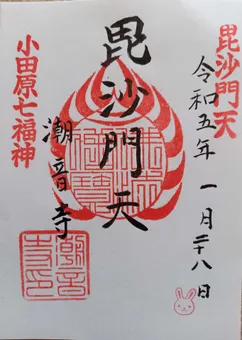 毘沙門天
令和五年 一月二十八日
毘沙門天
潮音寺
小田原七福神
潮音寺印